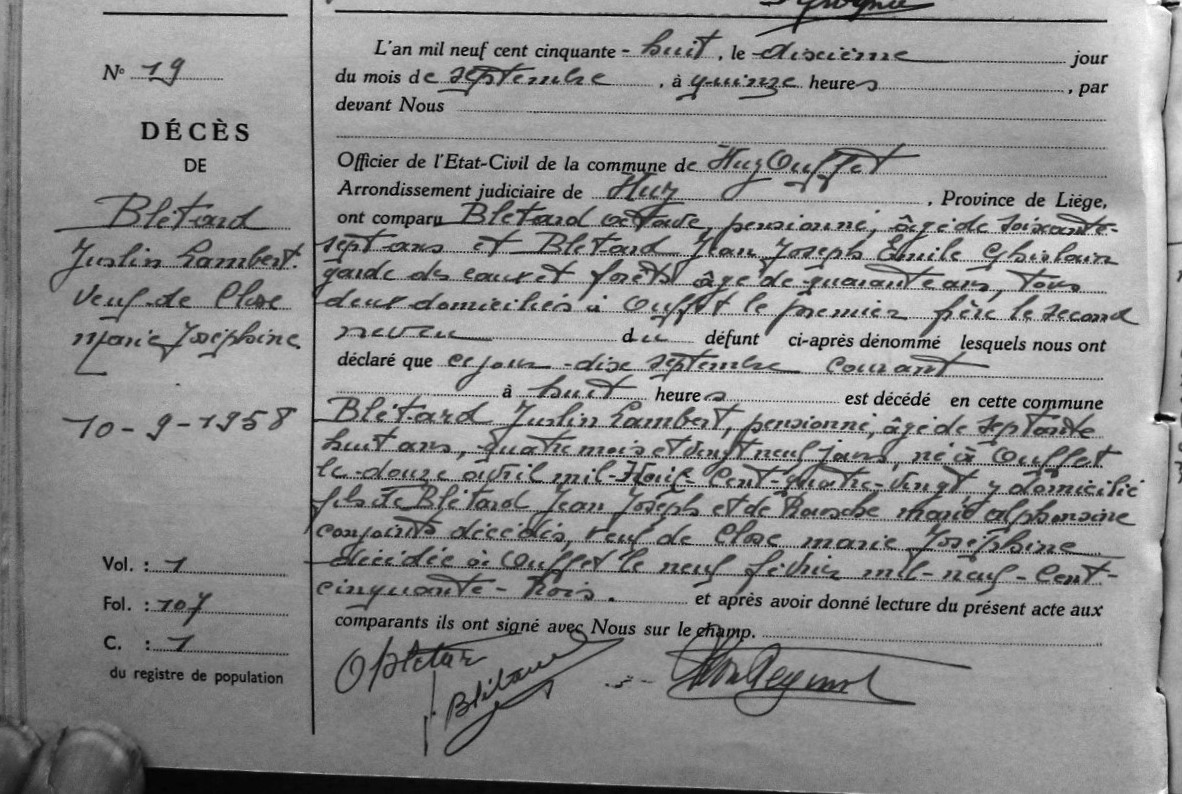 N° 19
DÉCÈS
DE
Blétard
Justin Lambert.
Veuf de Close
Marie Joséphine
10-9-1958
Vol. : 1
Fol. : 107
C. : 1
du registre de population
L'an mil neuf cent cinquante-huit, le dixième jour
du mois de septembre, à quinze heures, par
devant Nous
Officier de l'Etat-Civil de la commune de Ouffet
Arrondissement judiciaire de Huy, Province de Liège,
ont comparu Blétard Octave, pensionné, âgé de soixante-
sept ans et Blétard Jean Joseph Emile Ghislain
garde des eaux et forêts âgé de quarante ans, tous
deux domiciliés à Ouffet le premier frère le second
neveu du défunt ci-après dénommé lesquels nous ont
déclaré que ce jour dix septembre courant
à huit heures est décédé en cette commune
Blétard Justin Lambert, pensionné, âgé de septante
huit ans, quatre mois et vingt neuf jours, né à Ouffet
le douze avril mil-huit-cent-quatre-vingt, y domicilié
fils de Blétard Jean Joseph et de Marie Alphonsine
conjoints décédés, veuf de Close Marie Joséphine
décédée à Ouffet le neuf février mil-neuf-cent-
cinquante-trois. et après avoir donné lecture du présent acte aux
comparants ils ont signé avec Nous sur le champ.
O Blétard
Blétard